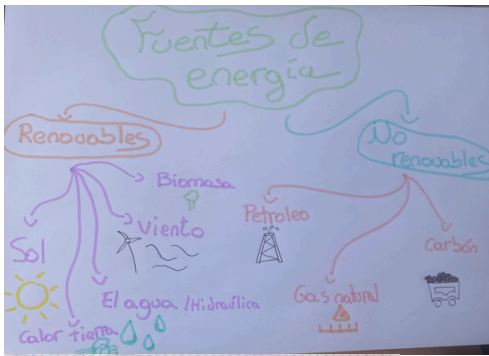 Fuentes de
energía
Renovables
No
renovables
Biomasa
Viento
Sol
El agua /Hidraúlica
Calor tierra
Petroleo
Carbón
Gas natural